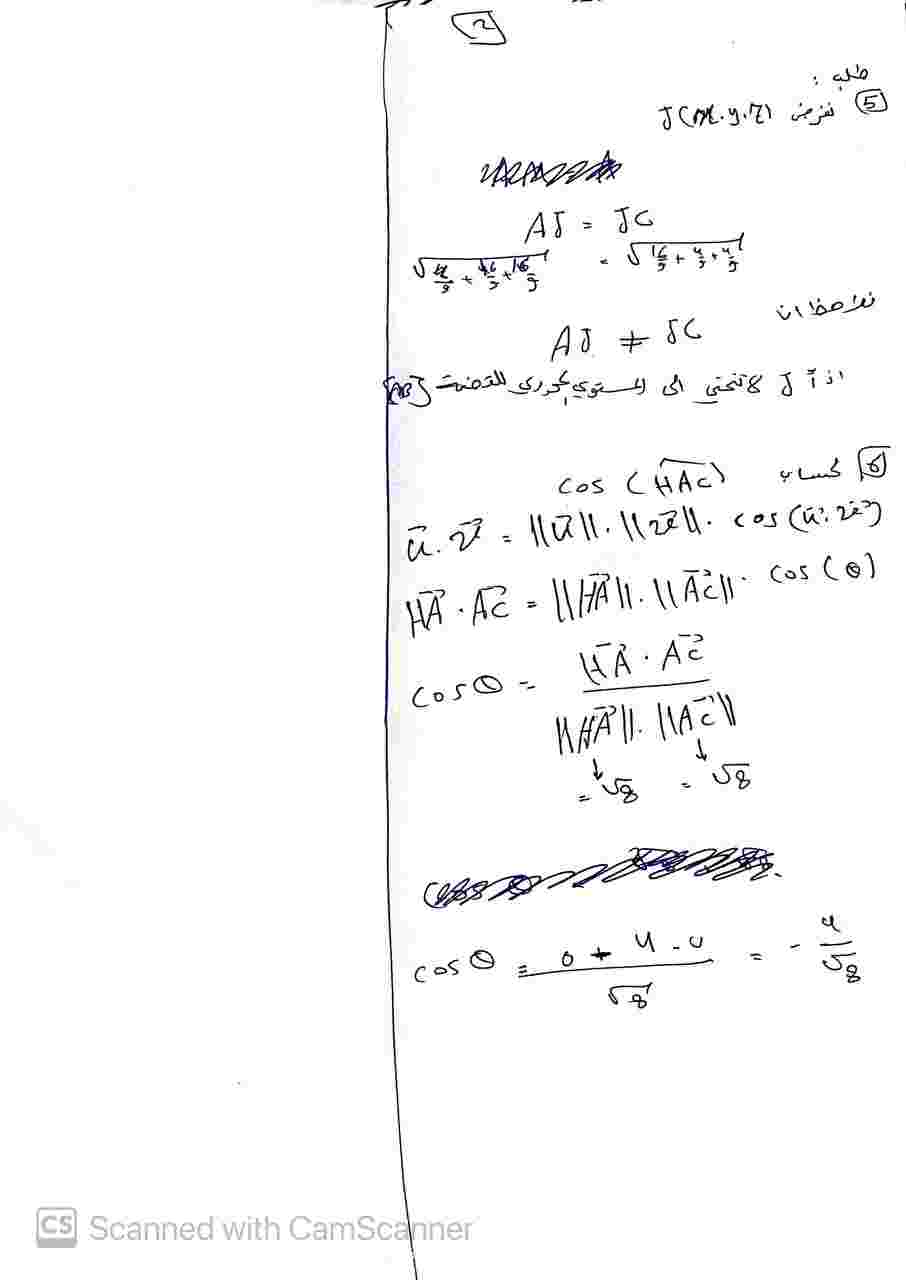 2
طلب :
5 نفرض J(x.y.z)
AJ = JC
√4/9 + 16/9 + 16/9 = √16/9 + 4/9 + 4/9
نلاحظ ان
AJ ≠ JC
اذاً J لا تنتمي الى المستوي المحوري للقطعة [AB]
6 لحساب cos (HAC)
u⃗ . v⃗ = ||u⃗|| . ||v⃗|| . cos(u⃗ . v⃗)
HA⃗ . AC⃗ = ||HA⃗|| . ||AC⃗|| . cos (θ)
cosθ = HA⃗ . AC⃗ / ||HA⃗|| . ||AC⃗||
= √8 = √8
cosθ = 0 + 4 - 0 / √8 = - 4/√8
CS Scanned with CamScanner